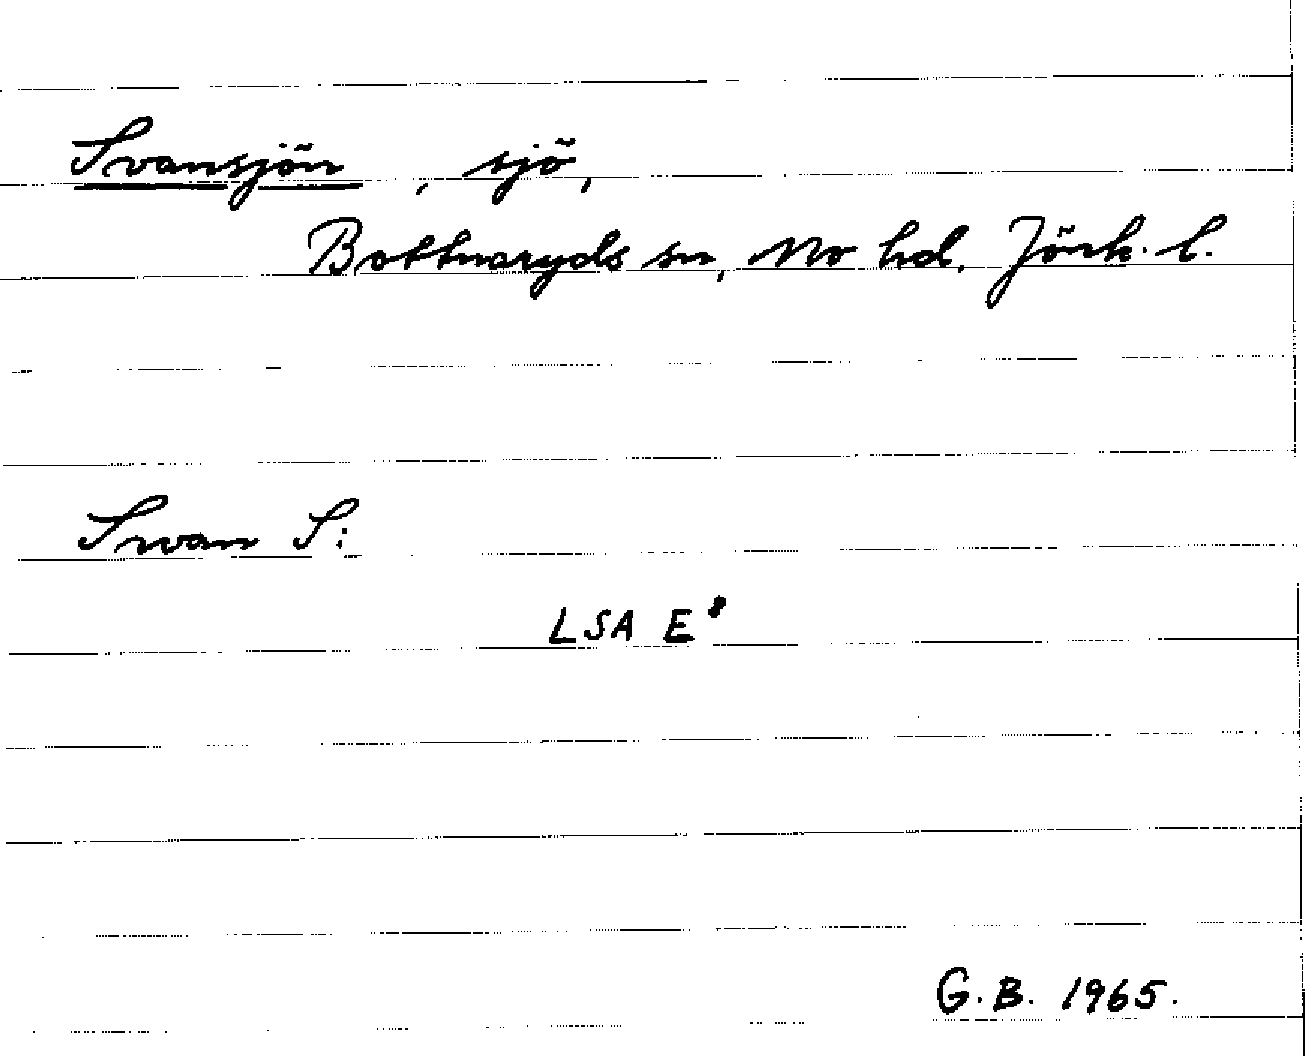 Svansjön, sjö,
Bottnaryds sn, Mo hd. Jönk. l.
Swan S:
LSA E⁸
G.B. 1965.